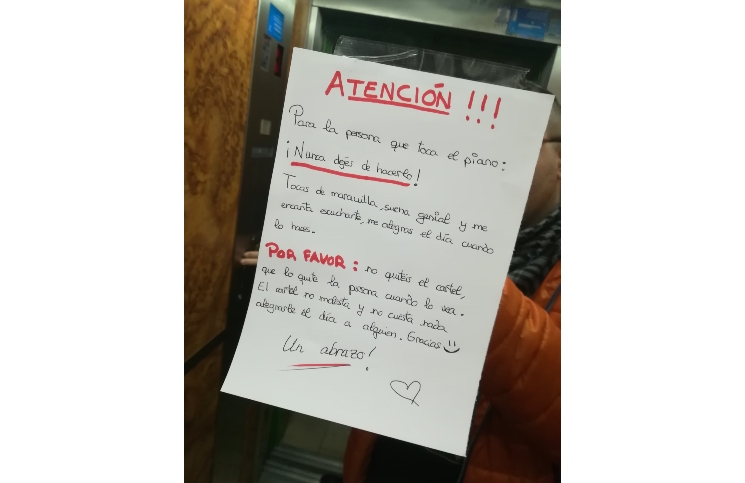 ATENCIÓN !!!
Para la persona que toca el piano:
¡Nunca dejes de hacerlo!
Tocas de maravilla, suena genial y me
encanta escucharte, me alegras el día cuando
lo haces.
POR FAVOR: no quitéis el cartel,
que lo quite la persona cuando lo vea.
El cartel no molesta y no cuesta nada
alegrarle el día a alguien. Gracias
Un abrazo!